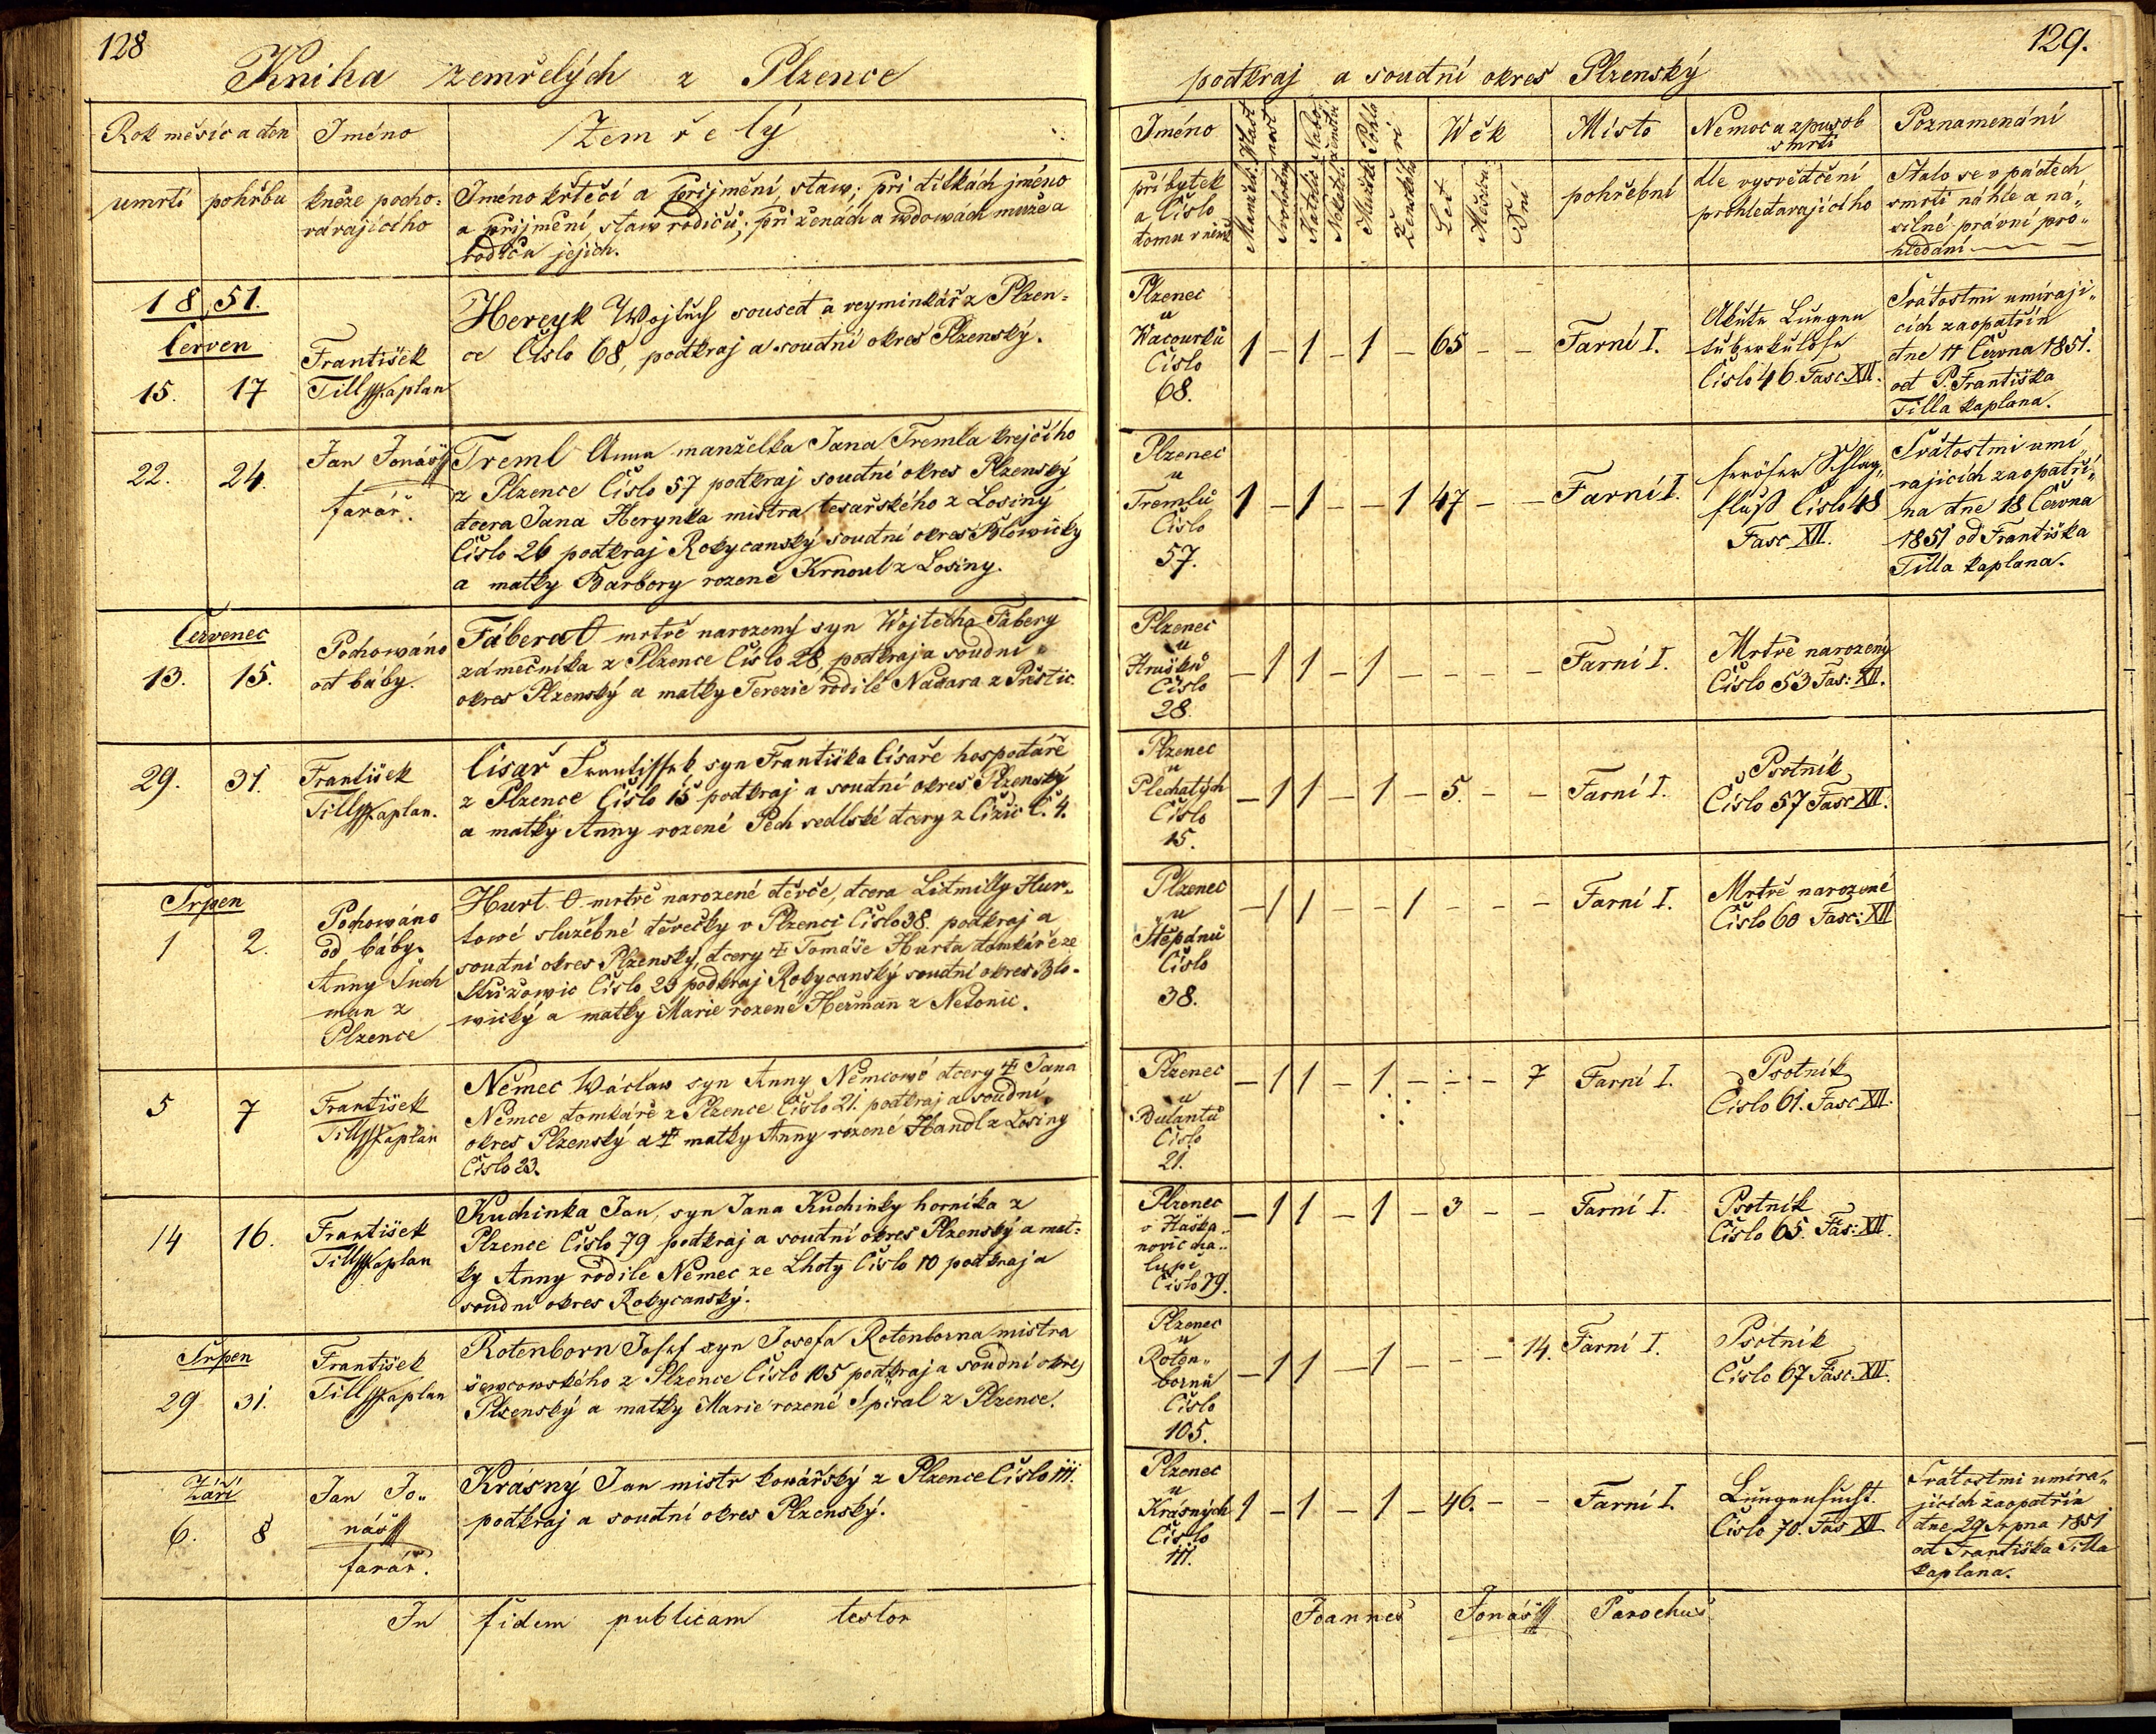 128
Kniha zemřelých z Plzence
Rok měsíc a den
Jméno
Zemřelý
umrtí
pohřbu
kněze pocho-
vávajícího
Jméno křtěcí a přijmění, staw; při dítkách jméno
a přijmění, staw rodičů; při ženách a wdowách muže a
rodičů jejich.
1851.
Červen
15.
17
František
Till Kaplan
Hereyk Wojtěch soused a veyminkář z Plzen-
ce Číslo 68, podkraj a soudní okres Plzenský.
22.
24.
Jan Jonáš
farář.
Treml Anna manželka Jana Tremla krejčího
z Plzence Číslo 57 podkraj soudní okres Plzenský
dcera Jana Herynka mistra tesařského z Losiny
Číslo 26 podkraj Rokycanský soudní okres Blowický
a matky Barbory rozené Krnoul z Losiny.
Červenec
13.
15.
Pochowáno
od báby.
Fábera O mrtvě narozený syn Wojtěcha Fábery
zámečníka z Plzence Číslo 28, podkraj a soudní
okres Plzenský a matky Terezie rodilé Nadara z Přeštic.
29.
31.
František
Till Kaplan.
Císař Frantissek syn Františka Císaře hospodáře
z Plzence Číslo 15 podkraj a soudní okres Plzenský
a matky Anny rozené Pech sedlské dcery z Čižic Č. 4.
Srpen
1
2.
Pochowáno
od báby
Anny Such
man z
Plzence
Hurt O mrtvě narozené děvče, dcera Lidmilly Hur-
towé služebné děvečky v Plzenci Číslo 38. podkraj a
soudní okres Plzenský, dcery ‡ Tomáše Hurta domkáře ze
Střížowic Číslo 23 podkraj Rokycanský soudní okres Blo-
wický a matky Marie rozené Heřman z Netonic.
5
7
František
Till Kaplan
Němec Wáclaw syn Anny Němcowé dcery ‡ Jana
Němce domkáře z Plzence Číslo 21. podkraj a soudní
okres Plzenský a ‡ matky Anny rozené Handl z Losiny
Číslo 23.
14
16.
František
Till Kaplan
Kuchinka Jan, syn Jana Kuchinky horníka z
Plzence Číslo 79 podkraj a soudní okres Plzenský a mat-
ky Anny rodilé Němec ze Lhoty Číslo 10 podkraj a
soudní okres Rokycanský.
Srpen
29
31.
František
Till Kaplan
Rotenborn Josef syn Josefa Rotenborna mistra
šewcowského z Plzence Číslo 105 podkraj a soudní okres
Plzenský a matky Marie rozené Spiral z Plzence.
Září
6.
8
Jan Jo-
náš
farář.
Krásný Jan mistr kowářský z Plzence Číslo 111.
podkraj a soudní okres Plzenský.
In fidem publicam testor
129.
podkraj a soudní okres Plzenský
Jméno
Wěk
Místo
Nemoc a způsob
smrti
Poznamenání
příbytek
a Číslo
domu v němž
Manžel.
Svobodný
Katolic
Nekatol.
Mužské
Ženské
Let
Měsíců
Dní
pohřební
dle vysvědčení
prohledavajícího
Stalo se v pádech
smrti náhlé a ná-
silné právní pro-
hledání
Plzenec
u
Wacourků
Číslo
68.
1 – 1 – 1 – 65 – –
Farní I.
Akute Lungen
tuberkulose
Číslo 46. Fasc. XII.
Svátostmi umírají-
cích zaopatřín
dne 11 Června 1851.
od P. Františka
Tilla kaplana.
Plzenec
u
Tremlů
Číslo
57.
1 – 1 – – 1 47 – –
Farní I.
seröser Schlag-
fluß Číslo 48
Fasc XII.
Svátostmi umí
rajících zaopatří-
na dne 18 Června
1851 od Františka
Tilla kaplana.
Plzenec
u
Hrušků
Číslo
28.
– 1 1 – 1 – – – –
Farní I.
Mrtvě narozený
Číslo 53 Fas: XII.
Plzenec
u
Plechatých
Číslo
15.
– 1 1 – 1 – 5. – –
Farní I.
Psotník
Číslo 57 Fasc XII.
Plzenec
u
Štěpánů
Číslo
38.
– 1 1 – – 1 – – –
Farní I.
Mrtvě narozené
Číslo 60 Fasc: XII
Plzenec
u
Bulantů
Číslo
21.
– 1 1 – 1 – – – 7
Farní I.
Psotník
Číslo 61. Fasc XII.
Plzenec
v Haška-
novic cha-
lupě
Číslo 79.
– 1 1 – 1 – 3 – –
Farní I.
Psotník
Číslo 65. Fas: XII.
Plzenec
u
Roten-
bornů
Číslo
105.
– 1 1 – 1 – – – 14.
Farní I.
Psotník
Číslo 67 Fasc. XII.
Plzenec
u
Krásných
Číslo
111.
1 – 1 – 1 – 46. – –
Farní I.
Lungensucht.
Číslo 70. Fas XII
Svátostmi umíra-
jících zaopatřín
dne 29 Srpna 1851
od Františka Tilla
kaplana.
Joannes Jonáš Parochus